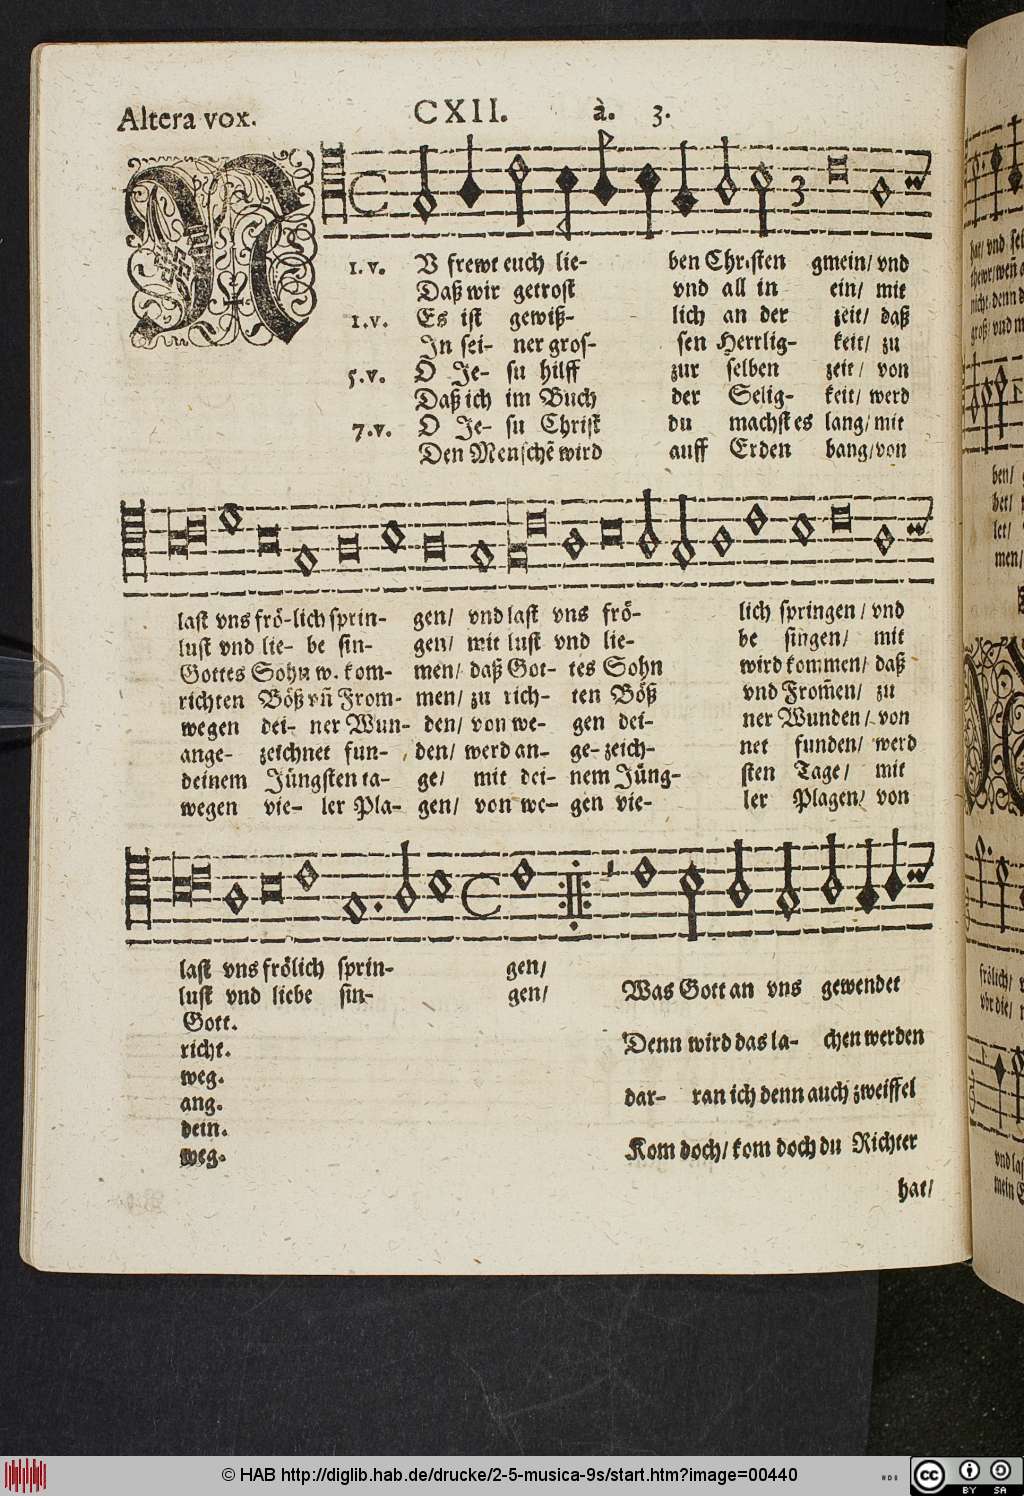 Altera vox. CXII. à. 3.
1.v. NU frewt euch lie- ben Christen gmein/ vnd
Daß wir getrost vnd all in ein/ mit
1.v. Es ist gewiß- lich an der zeit/ daß
In sei- ner gros- sen Herrlig- keit/ zu
5.v. O Je- su hilff zur selben zeit/ von
Daß ich im Buch der Selig- keit/ werd
7.v. O Je- su Christ du machst es lang/ mit
Den Menschē wird auff Erden bang/ von
last vns frö- lich sprin- gen/ vnd last vns frö- lich springen/ vnd
lust vnd lie- be sin- gen/ mit lust vnd lie- be singen/ mit
Gottes Sohn w. kom- men/ daß Got- tes Sohn wird kommen/ daß
richten Böß vñ From- men/ zu rich- ten Böß vnd From̄en/ zu
wegen dei- ner Wun- den/ von we- gen dei- ner Wunden/ von
ange- zeichnet fun- den/ werd an- ge- zeich- net funden/ werd
deinem Jüngsten ta- ge/ mit dei- nem Jüng- sten Tage/ mit
wegen vie- ler Pla- gen/ von we- gen vie- ler Plagen/ von
last vns frölich sprin- gen/
lust vnd liebe sin- gen/ Was Gott an vns gewendet
Gott.
richt. Denn wird das la- chen werden
weg.
ang. dar- ran ich denn auch zweiffel
dein.
weg. Kom doch/ kom doch du Richter
hat/
© HAB http://diglib.hab.de/drucke/2-5-musica-9s/start.htm?image=00440
cc BY SA